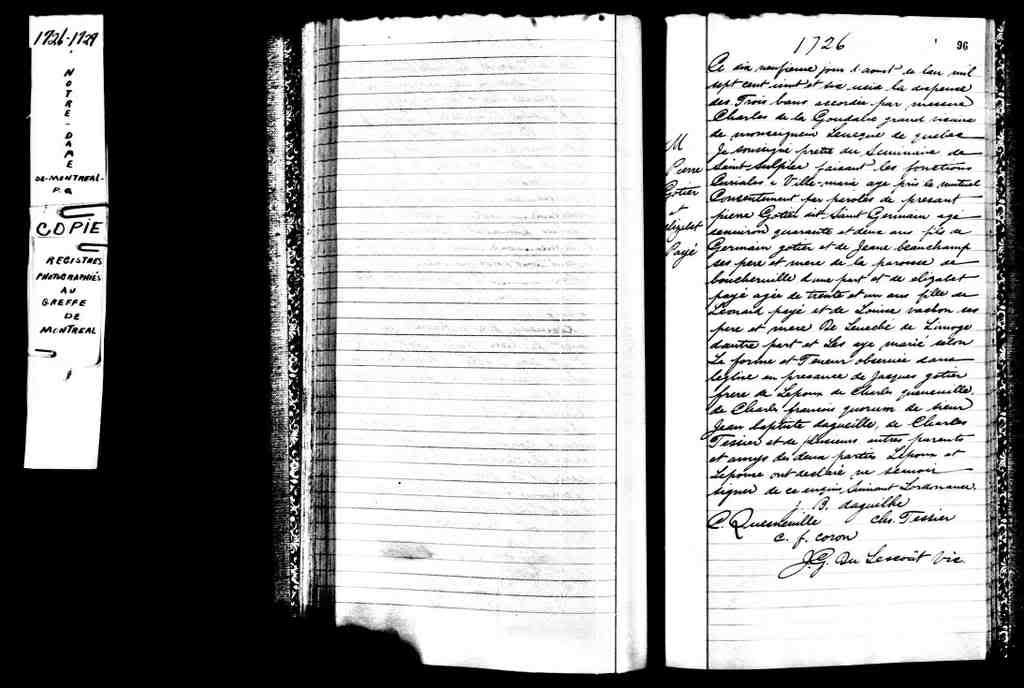 1726-1729
NOTRE-DAME
DE-MONTREAL-
P.Q
COPIE
REGISTRES
PHOTOGRAPHIÉS
AU
GREFFE
DE
MONTREAL
1726
96
M
Pierre
Gotier
et
elizabet
Payé
Ce dix neufieme jour d'aoust de lan mil
sept cent vint et six veüe la dispense
des Trois bans accordée par messire
Charles de la Goudalie grand vicaire
de monseigneur Leveque de quebec
Je soussigné pretre du Seminaire de
Saint Sulpice faisant les fonctions
Curiales a Ville-marie aye pris le mutuel
Consentement par paroles de present
pierre Gotier dit Saint Germain agé
denviron quarante et deux ans fils de
Germain gotier et de Jeane beauchamp
ses pere et mere de la paroisse de
boucherville d'une part et de elizabet
payé agée de trente et un ans fille de
Léonard payé et de Louise vachon ses
pere et mere De Leveché de Limoge
dautre part et Les aye marié selon
La forme et Teneur observée dans
leglise en presance de Jacques gotier
frere de Lepoux de Charles queneville
de Charles francois quorum de sieur
Jean baptiste dagueille, de Charles
Tessier et de plusieurs autres parents
et amys des deux parties Lepoux et
Lepouse ont declaré ne scavoir
signer de ce enquis suivant Lordonance.
J. B. daguilhe
C. Quesneville chs. Tessier
c. f. coron
J. G. Du Lescoät Vic.